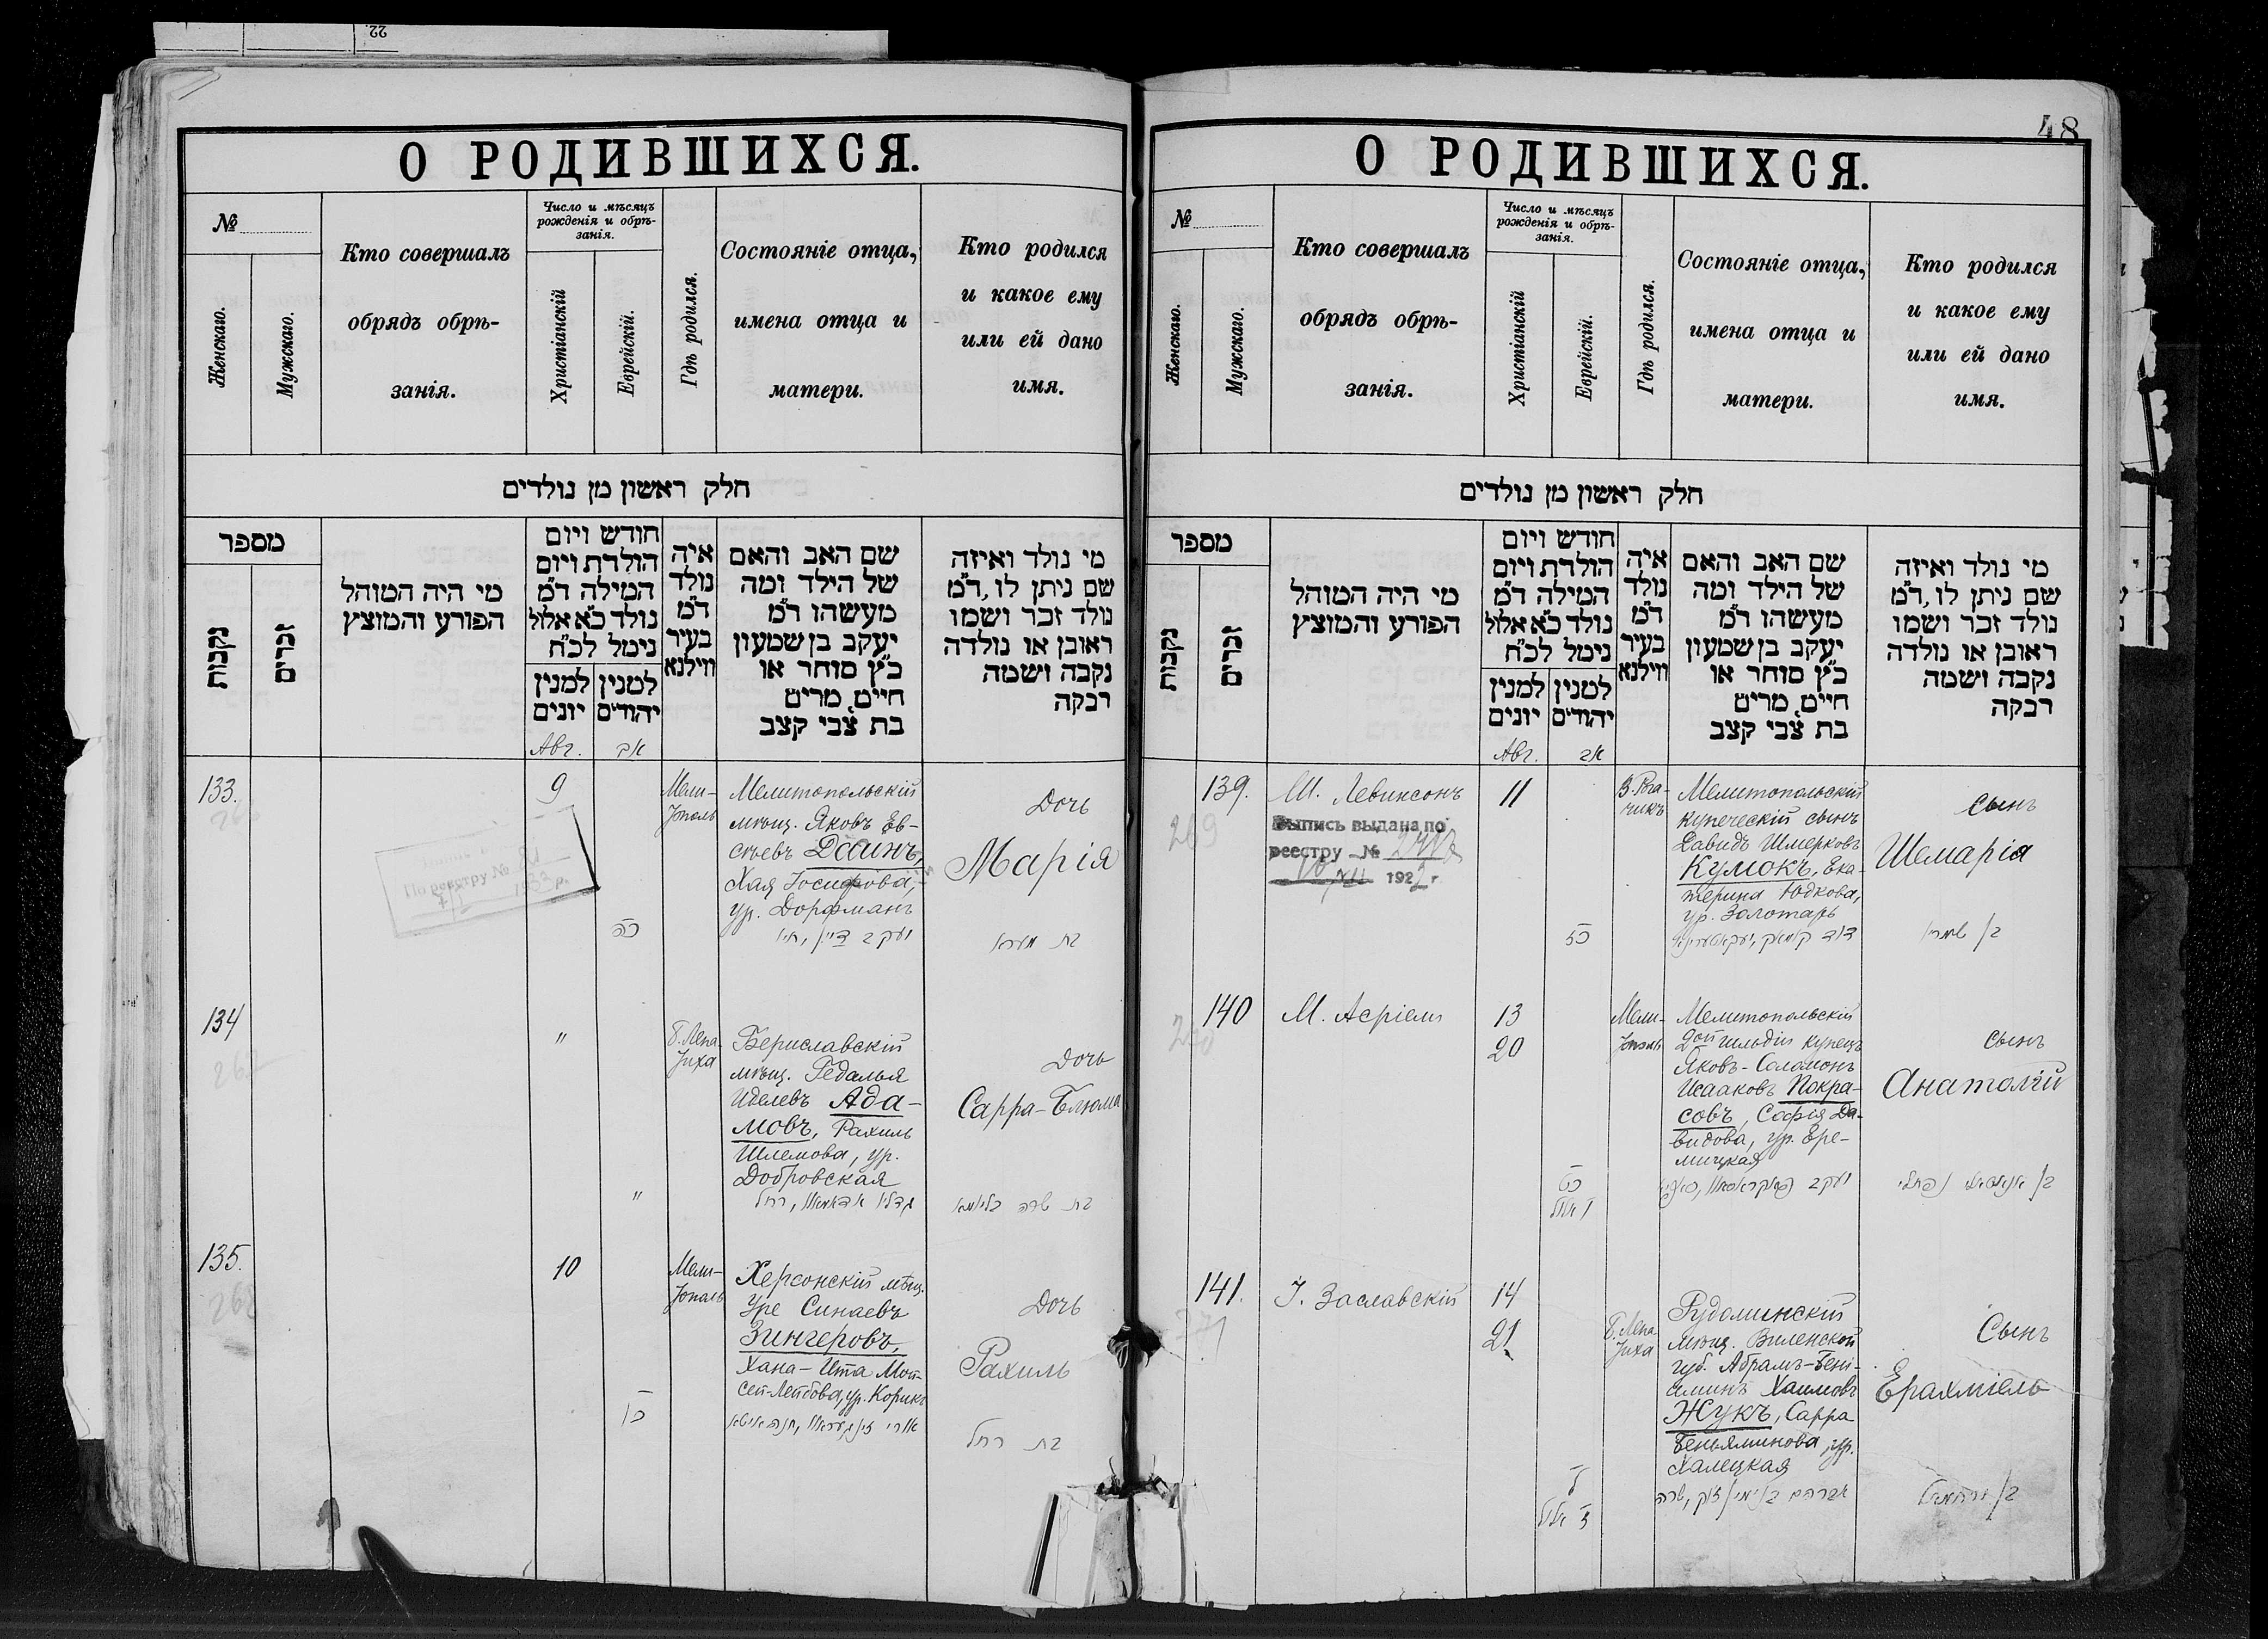 22.
О РОДИВШИХСЯ.
№
Женскаго.
Мужскаго.
Кто совершалъ
обрядъ обрѣ-
занія.
Число и мѣсяцъ
рожденія и обрѣ-
занія.
Христіанскій
Еврейскій.
Гдѣ родился.
Состояніе отца,
имена отца и
матери.
Кто родился
и какое ему
или ей дано
имя.
חלק ראשון מן נולדים
מספר
נקבות
זכרים
מי היה המוהל
הפורע והמוצץ
חודש ויום
הולדת ויום
המילה ד״מ
נולד כ״א אלול
נימל לכ״ח
למנין
יונים
למנין
יהודים
איה
נולד
ד״מ
בעיר
ווילנא
שם האב והאם
של הילד ומה
מעשהו ד״מ
יעקב בן שמעון
כ״ץ סוחר או
חיים, מרים
בת צבי קצב
מי נולד ואיזה
שם ניתן לו, ד״מ
נולד זכר ושמו
ראובן או נולדה
נקבה ושמה
רבקה
Авг.
אב
133.
9
Мели-
тополь
Мелитопольскій
мѣщ. Яковъ Ев-
сѣевъ Даинъ,
Хая Іосифова,
ур. Дорфманъ
יעקב דיין, חי׳
Дочь
Марія
כה
134
"
Б. Лепа-
тиха
Бериславскій
мѣщ. Гедалья
Иделевъ Ада-
мовъ, Рахиль
Шлемова, ур.
Добровская
גדלי׳ אדאמאוו, רחל
Дочь
Сарра-Блюма
בת שרה בליומא
"
135.
10
Мели-
тополь
Херсонскій мѣщ.
Уре Синаевъ
Зингеровъ,
Хана-Ита Мои-
сей-Лейбова, ур. Корикъ
אורי זינגעראוו, חנה איטא
Дочь
Рахиль
בת רחל
כו
48
О РОДИВШИХСЯ.
№
Женскаго.
Мужскаго.
Кто совершалъ
обрядъ обрѣ-
занія.
Число и мѣсяцъ
рожденія и обрѣ-
занія.
Христіанскій
Еврейскій.
Гдѣ родился.
Состояніе отца,
имена отца и
матери.
Кто родился
и какое ему
или ей дано
имя.
חלק ראשון מן נולדים
מספר
נקבות
זכרים
מי היה המוהל
הפורע והמוצץ
חודש ויום
הולדת ויום
המילה ד״מ
נולד כ״א אלול
נימל לכ״ח
למנין
יונים
למנין
יהודים
איה
נולד
ד״מ
בעיר
ווילנא
שם האב והאם
של הילד ומה
מעשהו ד״מ
יעקב בן שמעון
כ״ץ סוחר או
חיים, מרים
בת צבי קצב
מי נולד ואיזה
שם ניתן לו, ד״מ
נולד זכר ושמו
ראובן או נולדה
נקבה ושמה
רבקה
Авг.
אב
139.
269
М. Левинсонъ
Выпись выдана по
реестру №
1922 г.
11
В. Рога-
чикъ
Мелитопольскій
купеческій сынъ
Давидъ Шмерковъ
Кумокъ, Ека-
терина Юдкова,
ур. Золотарь
Сынъ
Шемарія
בן שמרי׳
כז
140
270
М. Асріелъ
13
20
Мели-
тополь
Мелитопольскій
2ой гильдіи купецъ
Яковъ-Соломонъ
Исааковъ Покра-
совъ, Софія Да-
видова, ур. Ере-
мицкая
Сынъ
Анатолій
כט
ו אלול
141.
271
І. Заславскій
14
21
Б. Лепа-
тиха
Рудоминскій
мѣщ. Виленской
губ. Абрамъ-Бені-
аминъ Хаимовъ
Жукъ, Сарра
Беньяминова, ур.
Халецкая
אברהם בנימין זוק, שרה
Сынъ
Ерахміель
בן ירחמיאל
ל
ז אלול